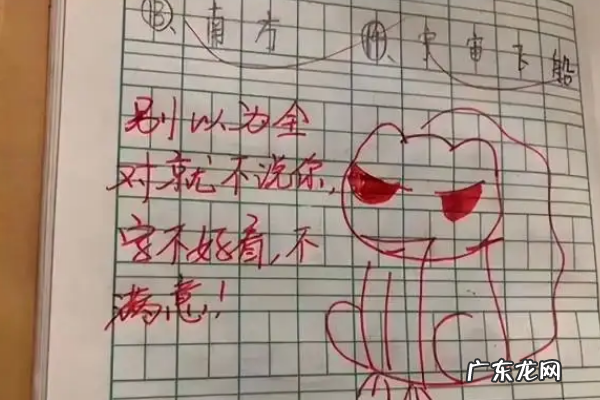 ⑬、南方 ⑭、宇宙飞船
别以为全
对就不说你,
字不好看,不
满意!
广东龙网